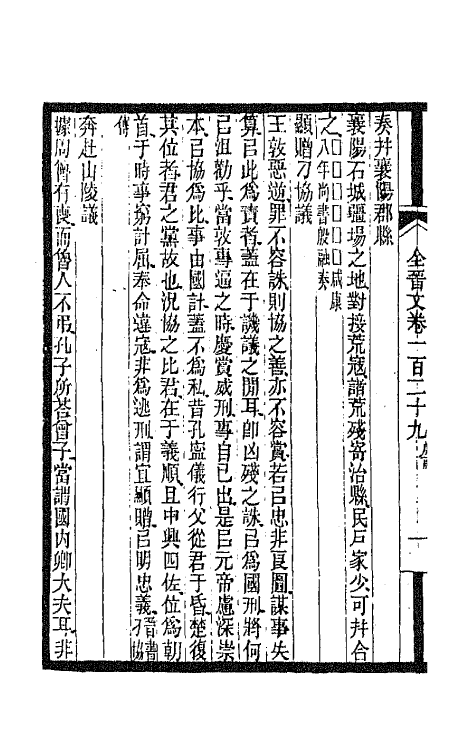 全晉文卷一百二十九
一
奏并襄陽郡縣
襄陽石城疆場之地對接荒寇諸荒殘寄治縣民戶家少可并合
之□□□□□咸康八年尚書殷融奏
顯贈刁協議
王敦惡逆罪不容誅則協之善亦不容賞若㠯忠非良圖謀事失
算㠯此爲責者蓋在于譏議之閒耳卽凶殘之誅㠯爲國刑將何
㠯沮勸乎當敦專逼之時慶賞威刑專自己出是㠯元帝慮深崇
本㠯協爲比事由國計蓋不爲私昔孔寧儀行父從君于昏楚復
其位者君之黨故也況協之比君在于義順且中興四佐位爲朝
首于時事窮計屈奉命違寇非爲逃刑謂宜顯贈㠯明忠義晉書刁協
傳
奔赴山陵議
據周曾有喪而魯人不弔孔子所荅曾子當謂國內卿大夫耳非